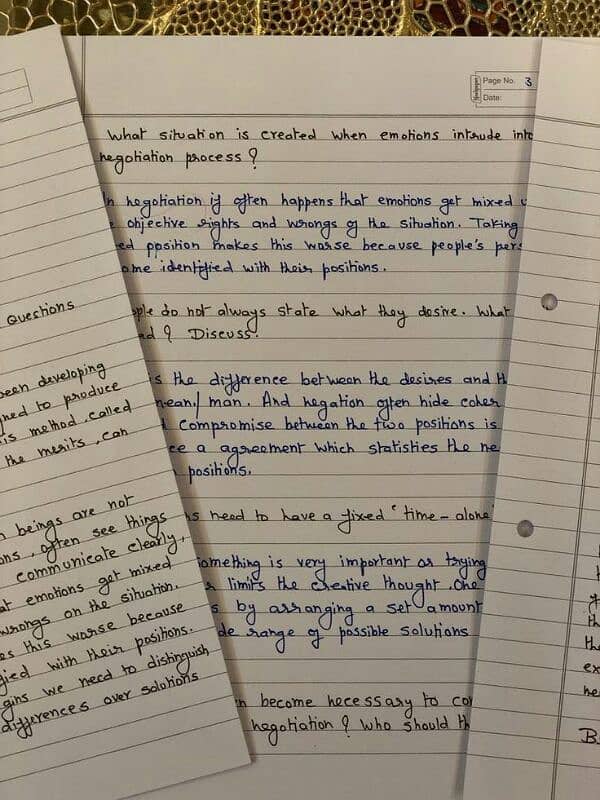 Page No. 3
Date:
What situation is created when emotions intrude into
negotiation process ?
In negotiation if often happens that emotions get mixed u
e objective rights and wrongs of the situation. Taking
ed ppsition makes this worse because people's pers
ome identified with their positions.
ople do not always state what they desire. What
ad ? Discuss.
is the difference between the desires and th
mean/ man. And negation often hide
d compromise between the two positions is
ce a agreement which statisties the ne
positions.
ns need to have a fixed "time - alone
something is very important or trying
r limits the creative thought. One
s by arranging a set amount
de range of possible solutions
n become necessary to co
negotiation ? Who should th
Questions
been developing
gned to produce
is method called
the merits, can
n beings are not
ons, often see things
communicate clearly,
at emotions get mixed
wrongs on the situation.
es this worse because
fied with their positions.
gins we need to distinguish
differences over solutions
th
the
ex
ne
B